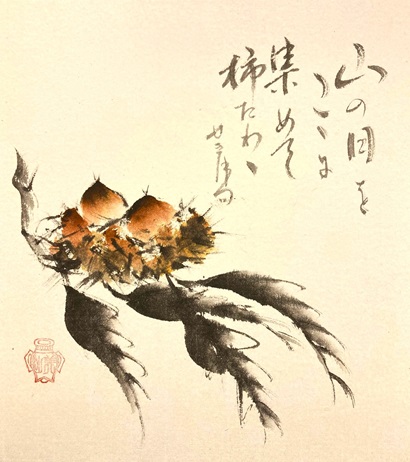 山の日を
こゝに
集めて
柿たわゝ